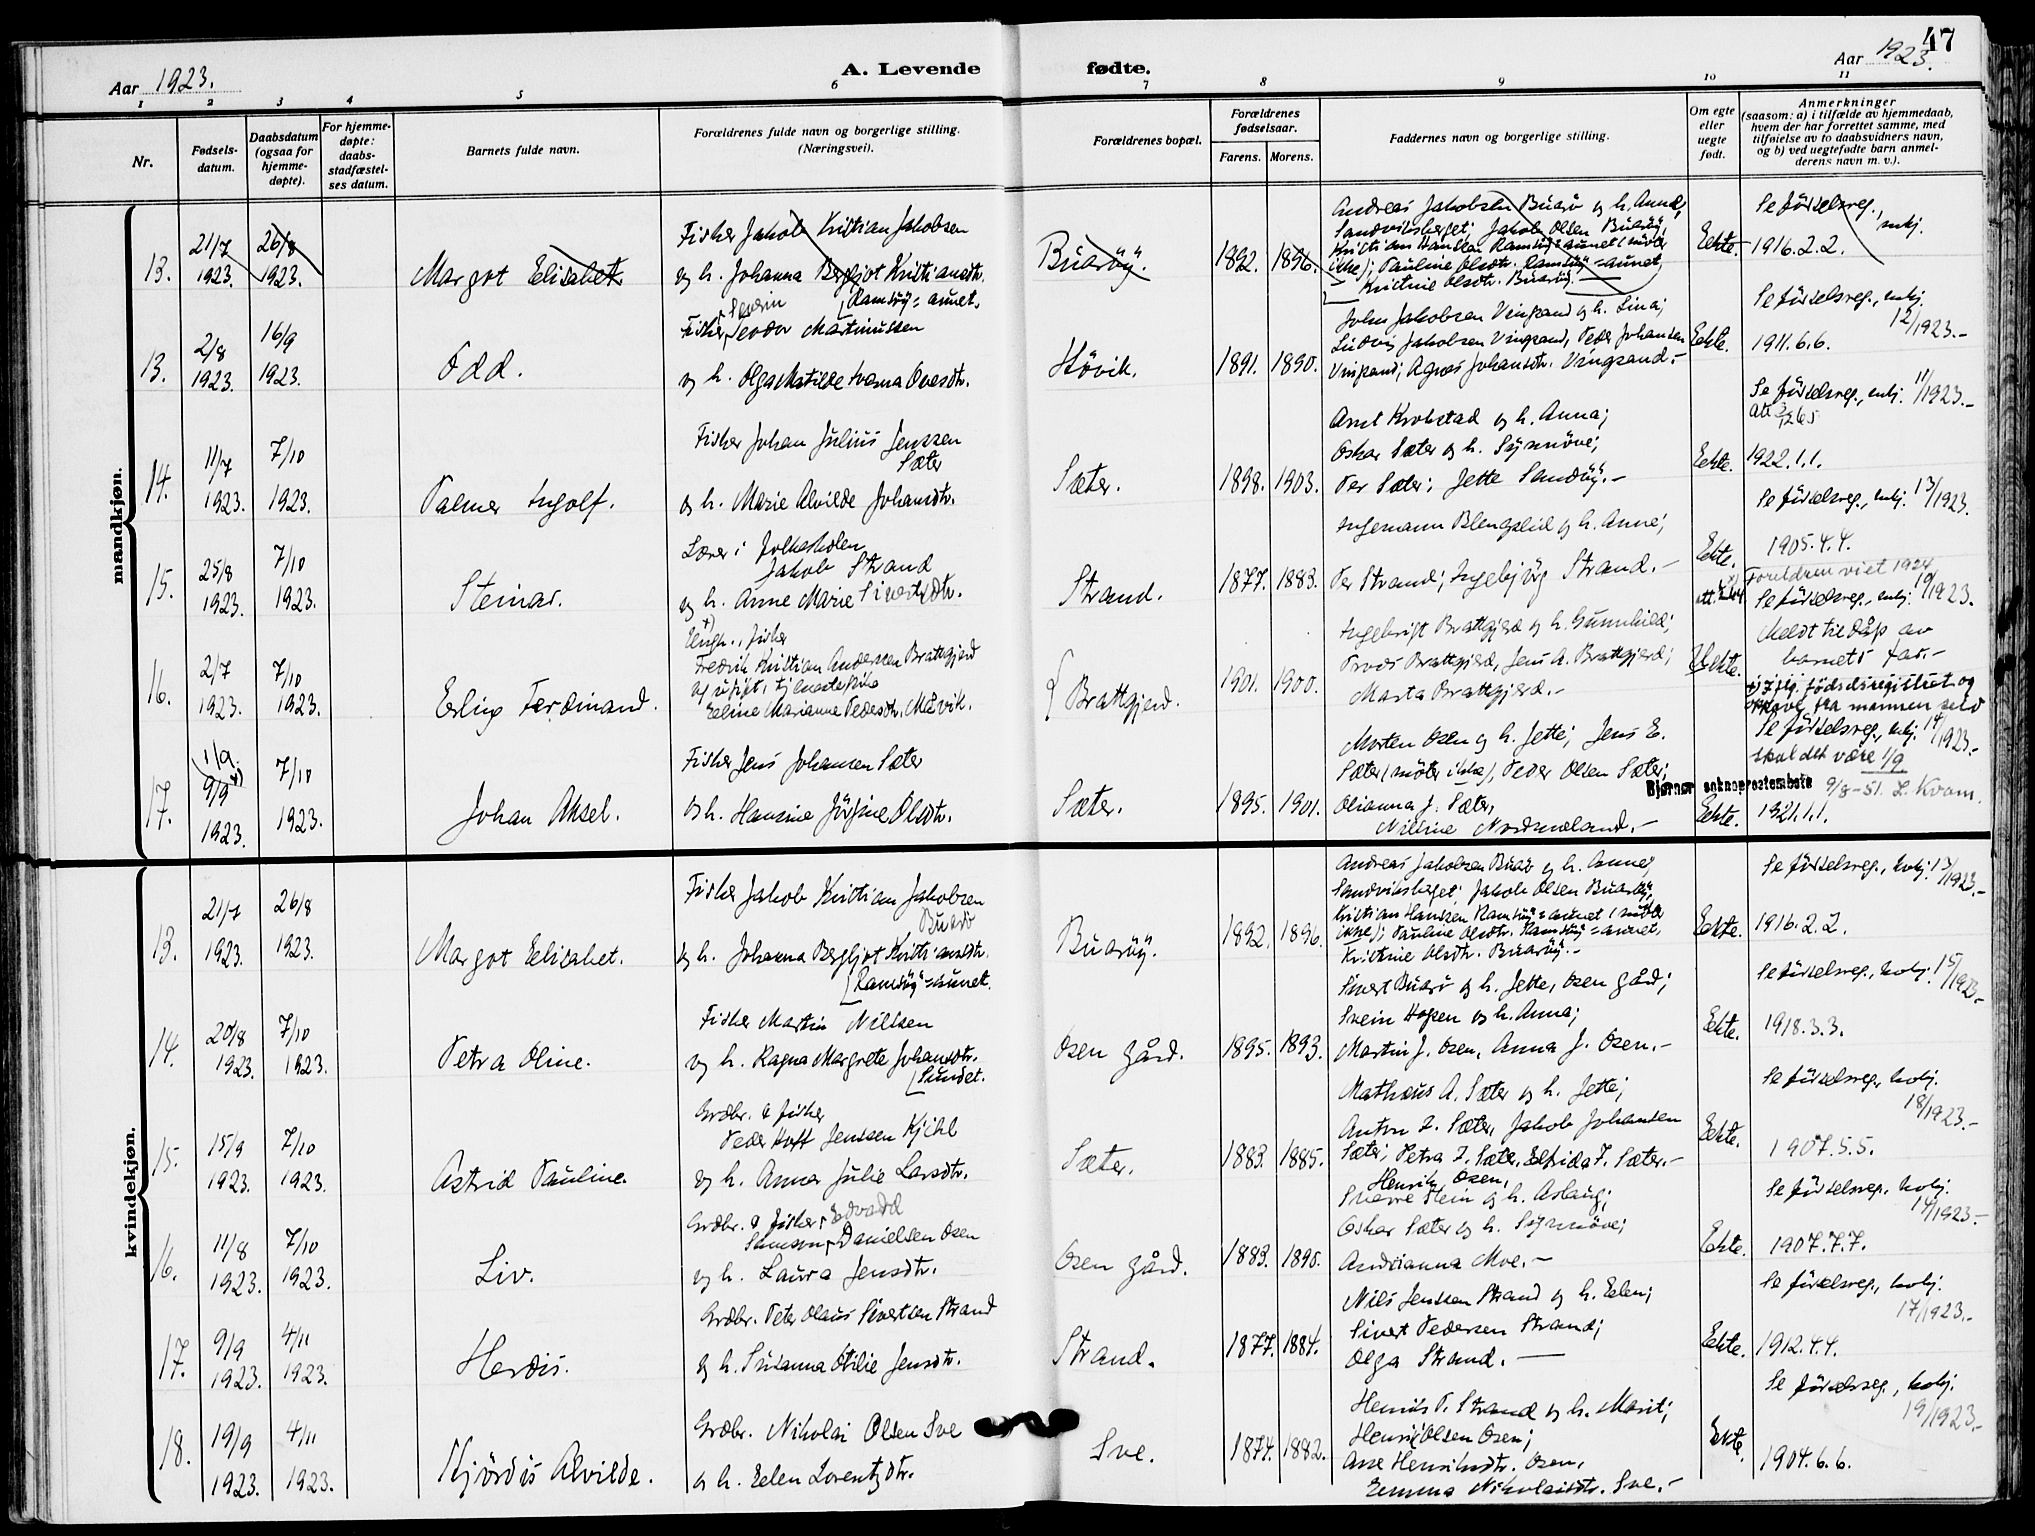 47
Aar 1923.
A. Levende fødte.
Aar 1923.
1 2 3 4 5 6 7 8 9 10 11
Nr.
Fødsels-
datum.
Daabsdatum
(ogsaa for
hjemme-
døpte).
For hjemme-
døpte:
daabs-
stadfæstel-
ses datum.
Barnets fulde navn.
Forældrenes fulde navn og borgerlige stilling.
(Næringsvei).
Forældrenes bopæl.
Forældrenes
fødselsaar.
Farens. Morens.
Faddernes navn og borgerlige stilling.
Om egte
eller
uegte
født.
Anmerkninger
(saasom: a) i tilfælde av hjemmedaab,
hvem der har forrettet samme, med
tilføielse av to daabsvidners navn,
og b) ved uegtefødte barn anmel-
derens navn m. v.).
mandkjøn.
13. 21/7 1923. 26/8 1923.
Margot Elisabet.
Fisker Jakob Kristian Jakobsen
og h. Johanna Bergljot Kristiansdtr.
Ramsöy=aunet.
Buaröy.
1892. 1896.
Andreas Jakobsen Buarö og h. Anna,
Sandviksberget; Jakob Olsen Buaröy,
Kristian Hansen Ramsöy=aunet (möter
ikke); Pauline Olsdtr. Ramsöy=aunet,
Kristine Olsdtr. Buaröy.
Eekte.
Se födselsreg., mkj.
1916.2.2.
13. 2/8 1923. 16/9 1923.
Odd.
Severin
Fisker Teodor Martinussen
og h. Olga Matilde Ovesdtr.
Hövik.
1891. 1890.
John Jakobsen Vingsand og h. Lina;
Ludvig Jakobsen Vingsand, Peder Johansen
Vingsand; Agnes Johansdtr. Vingsand.-
Eekte.
Se födselsreg., mkj.
12/1923.-
1911.6.6.
14. 11/7 1923. 7/10 1923.
Palmer Ingolf.
Fisker Johan Julius Jenssen
Sæter
og h. Marie Alvilde Johansdtr.
Sæter.
1898. 1903.
Arnt Krobstad og h. Anna;
Oskar Sæter og h. Synnöve;
Per Sæter; Jette Sandöy.-
Eekte.
Se födselsreg., mkj. 11/1923.-
1922.1.1.
15. 25/8 1923. 7/10 1923.
Steinar.
Lærer i folkeskolen
Jakob Strand
og h. Anne Marie Sivertsdtr.
Strand.
1877. 1883.
Ingemann Blengslid og h. Anne;
Per Strand; Ingebjörg Strand.-
Eekte.
Se födselsreg., mkj. 13/1923.
1905.4.4.
16. 2/7 1923. 7/10 1923.
Erling Ferdinand.
Ungk., fisker
Fredrik Kristian Andersen Brattgjerd
og ugift, tjenestepike
Eeline Marianne Pedersdtr. Måvik.
Brattgjerd.
1901. 1900.
Ingebrigt Brattgjerd og h. Gunnhild;
Peder Brattgjerd, Jens A. Brattgjerd;
Marta Brattgjerd.-
Uekte.
Foreldrene viet 1924
Se födselsreg., mkj. 10/1923.
Meldt til dåp av
barnets far.-
iflg. fødselsregistret og
oppgave fra mannen selv
17. 1/9 9/9 1923. 7/10 1923.
Johan Aksel.
Fisker Jens Johansen Sæter
og h. Hansine Jörgine Olsdtr.
Sæter.
1895. 1901.
Morten Osen og h. Jette; Jens E.
Sæter (möter ikke), Peder Olsen Sæter;
Olianna J. Sæter,
Nilsine Nordmeland.-
Eekte.
Se födselsreg., mkj. 14/1923.-
skal det være 1/9
Bjørnør sokneprestembete 9/8-51. L. Kvam.
1921.1.1.
kvindekjøn.
13. 21/7 1923. 26/8 1923.
Margot Eelisabet.
Fisker Jakob Kristian Jakobsen
Buarö
og h. Johanna Bergljot Kristiansdtr.
Ramsöy=aunet.
Buaröy.
1892. 1896.
Andreas Jakobsen Buarö og h. Anne,
Sandviksberget; Jakob Olsen Buaröy,
Kristian Hanssen Ramsöy=aunet (möter
ikke); Pauline Olsdtr. Ramsöy=aunet,
Kristine Olsdtr. Buaröy.-
Eekte.
Se födselsreg., kvkj. 13/1923.-
1916.2.2.
14. 20/8 1923. 7/10 1923.
Petra Oline.
Fisker Martin Nillsen
og h. Ragna Margrete Johansdtr.
Sundet.
Osen gård.
1895. 1893.
Sivert Buarö og h. Jette, Osen gård;
Svein Hopen og h. Anna;
Martin J. Osen, Anna J. Osen.-
Eekte.
Se födselsreg., kvkj. 15/1923.-
1918.3.3.
15. 15/9 1923. 7/10 1923.
Astrid Pauline.
Grdbr. & fisker
Peder Hoff Jenssen Kjihl
og h. Anna Julie Larsdtr.
Sæter.
1883. 1885.
Mathæus A. Sæter og h. Jette;
Anton I. Sæter, Jakob Johansen
Sæter; Petra I. Sæter, Elfrida I. Sæter.-
Eekte.
Se födselsreg., kvkj.
18/1923.-
1907.5.5.
16. 11/8 1923. 7/10 1923.
Liv.
Grdbr. & fisker Edvard
Samson Danielsen Osen
og h. Laura Jensdtr.
Osen gård.
1883. 1890.
Henrik Osen,
Sverre Stein og h. Aslaug;
Oskar Sæter og h. Synnöve;
Andrianna Moe.-
Eekte.
Se födselsreg., kvkj.
14/1923.-
1907.7.7.
17. 9/9 1923. 4/11 1923.
Herdis.
Grdbr. Peter Olaus Sivertsen Strand
og h. Susanna Otilie Jensdtr.
Strand.
1877. 1884.
Nils Jenssen Strand og h. Eelen;
Sivert Pedersen Strand;
Olga Strand.-
Eekte.
Se födselsreg., kvkj.
17/1923.-
1912.4.4.
18. 19/9 1923. 4/11 1923.
Hjördis Alvilde.
Grdbr. Nikolai Olsen Sve
og h. Eelen Lorentzdtr.
Sve.
1874. 1882.
Henrik P. Strand og h. Marit;
Henrik Olsen Osen;
Ane Henriksdtr. Osen,
Eemma Nikolaisdtr. Sve.-
Eekte.
Se födselsreg., kvkj.
19/1923.-
1904.6.6.